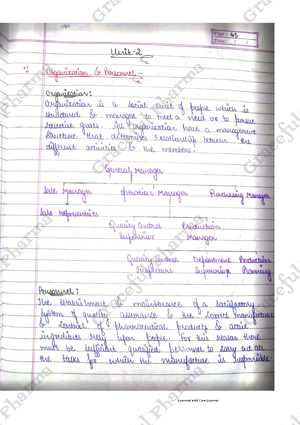 Page: 45
Date: / /
Unit-2
Organization & Personnel :-
Organization:
Organization is a social unit of people which is
structured & managed to meet a need or to pursue
collective goals. All organization have a management
structure that determines relationship between the
different activities & the members.
General Manager
Sales Manager Operation Manager Purchasing Manager
Sales representatives
Quality control Production
Supervisor Manager
Quality control Department Production
Inspectors Supervisor Planning
Personnel :
The establishment & maintenance of a satisfactory
system of quality assurance & the correct manufacture
& control of pharmaceutical products & active
ingredients rely upon people. For this reason there
must be sufficient qualified personnel to carry out all
the tasks for which the manufacture is responsible
Scanned with CamScanner
Graceful Pharma